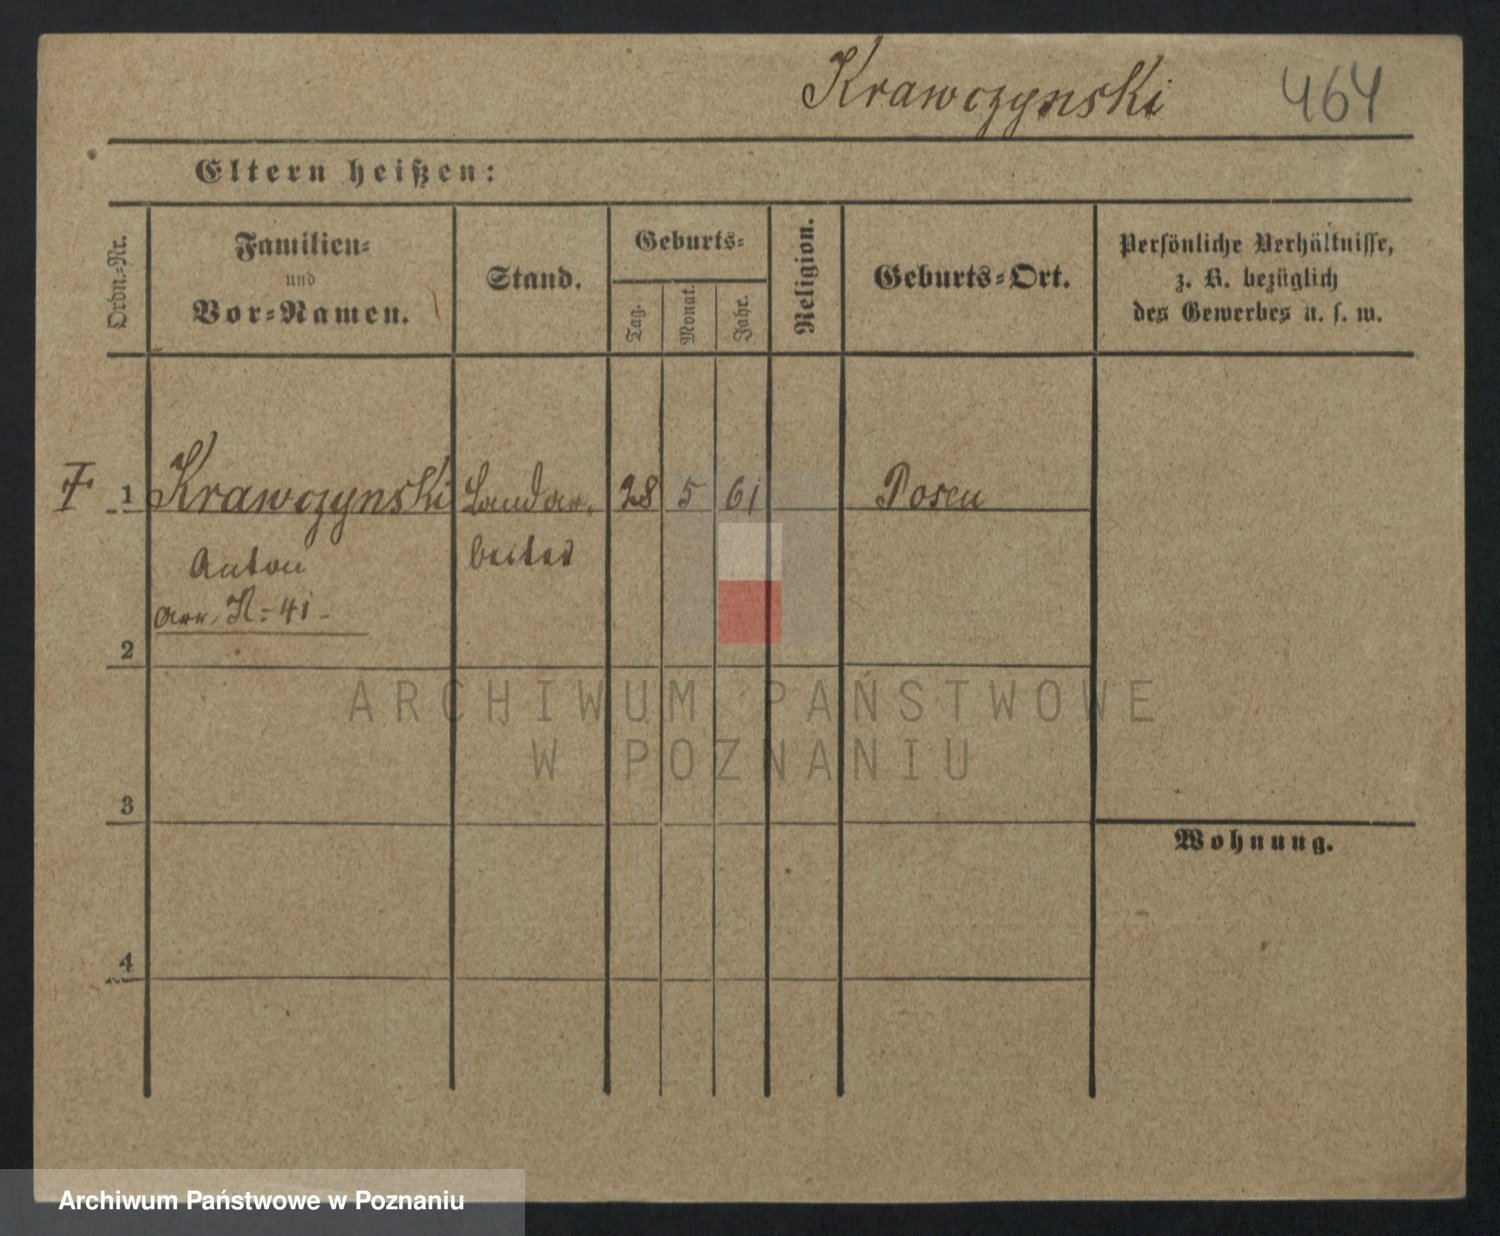 Krawczynski 464
Eltern heißen:
Ordn.-Nr.
Familien-
und
Vor-Namen.
Stand.
Geburts-
Tag.
Monat.
Jahr.
Religion.
Geburts-Ort.
Persönliche Verhältnisse,
z. B. bezüglich
des Gewerbes u. s. w.
1 Krawczynski Landar- 28 5 61 Posen
Anton beiter
K-41-
2
ARCHIWUM PAŃSTWOWE
W POZNANIU
3
Wohnung.
4
Archiwum Państwowe w Poznaniu